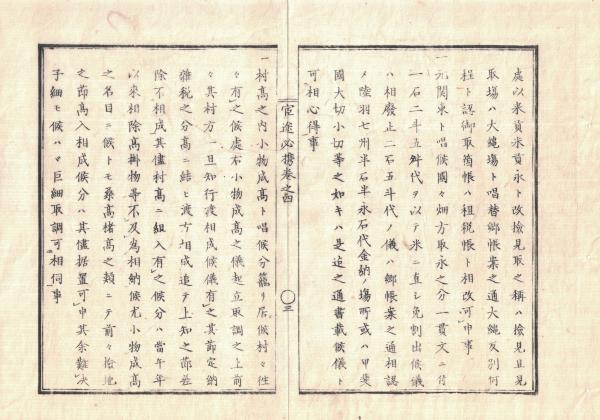 處以米貢米貢永ト改檢見取之稱ハ撿見且見
取場ハ大繩場ト唱替鄕帳案之通大繩反別何
程ト認御取箇帳ハ租税帳ト相改可申事
一元關東ト唱候國々畑方取永之分一貫文ニ付
一石二斗五舛代ヲ以テ米ニ直シ免割出候儀
ハ相廢止二石五斗代ノ儀ハ鄕帳案之通相認
ノ陸羽七州半石半永石代金納ノ塲所或ハ甲斐
國大切小切等之如キハ是迄之通書載候儀ト
可相心得事
宦途必携卷之四
〇三
一村高之内小物成高ト唱候分籠リ居候村々往
々有之候處右小物成高之儀起立取調之上前
々其村方一旦知行渡相成候儀有之其節定納
雜税之分高ニ結ヒ渡方相成追テ上知之節並
除不相成其儘村高ニ組入有之候分ハ當午年
以來相除高掛物等不及爲相納候尤小物成高
之名目ニ候トモ桑高楮高之類ニテ前々撿地
之節高入相成候分ハ其儘据置可申其余難決
子細モ候ハヽ巨細取調可相伺事